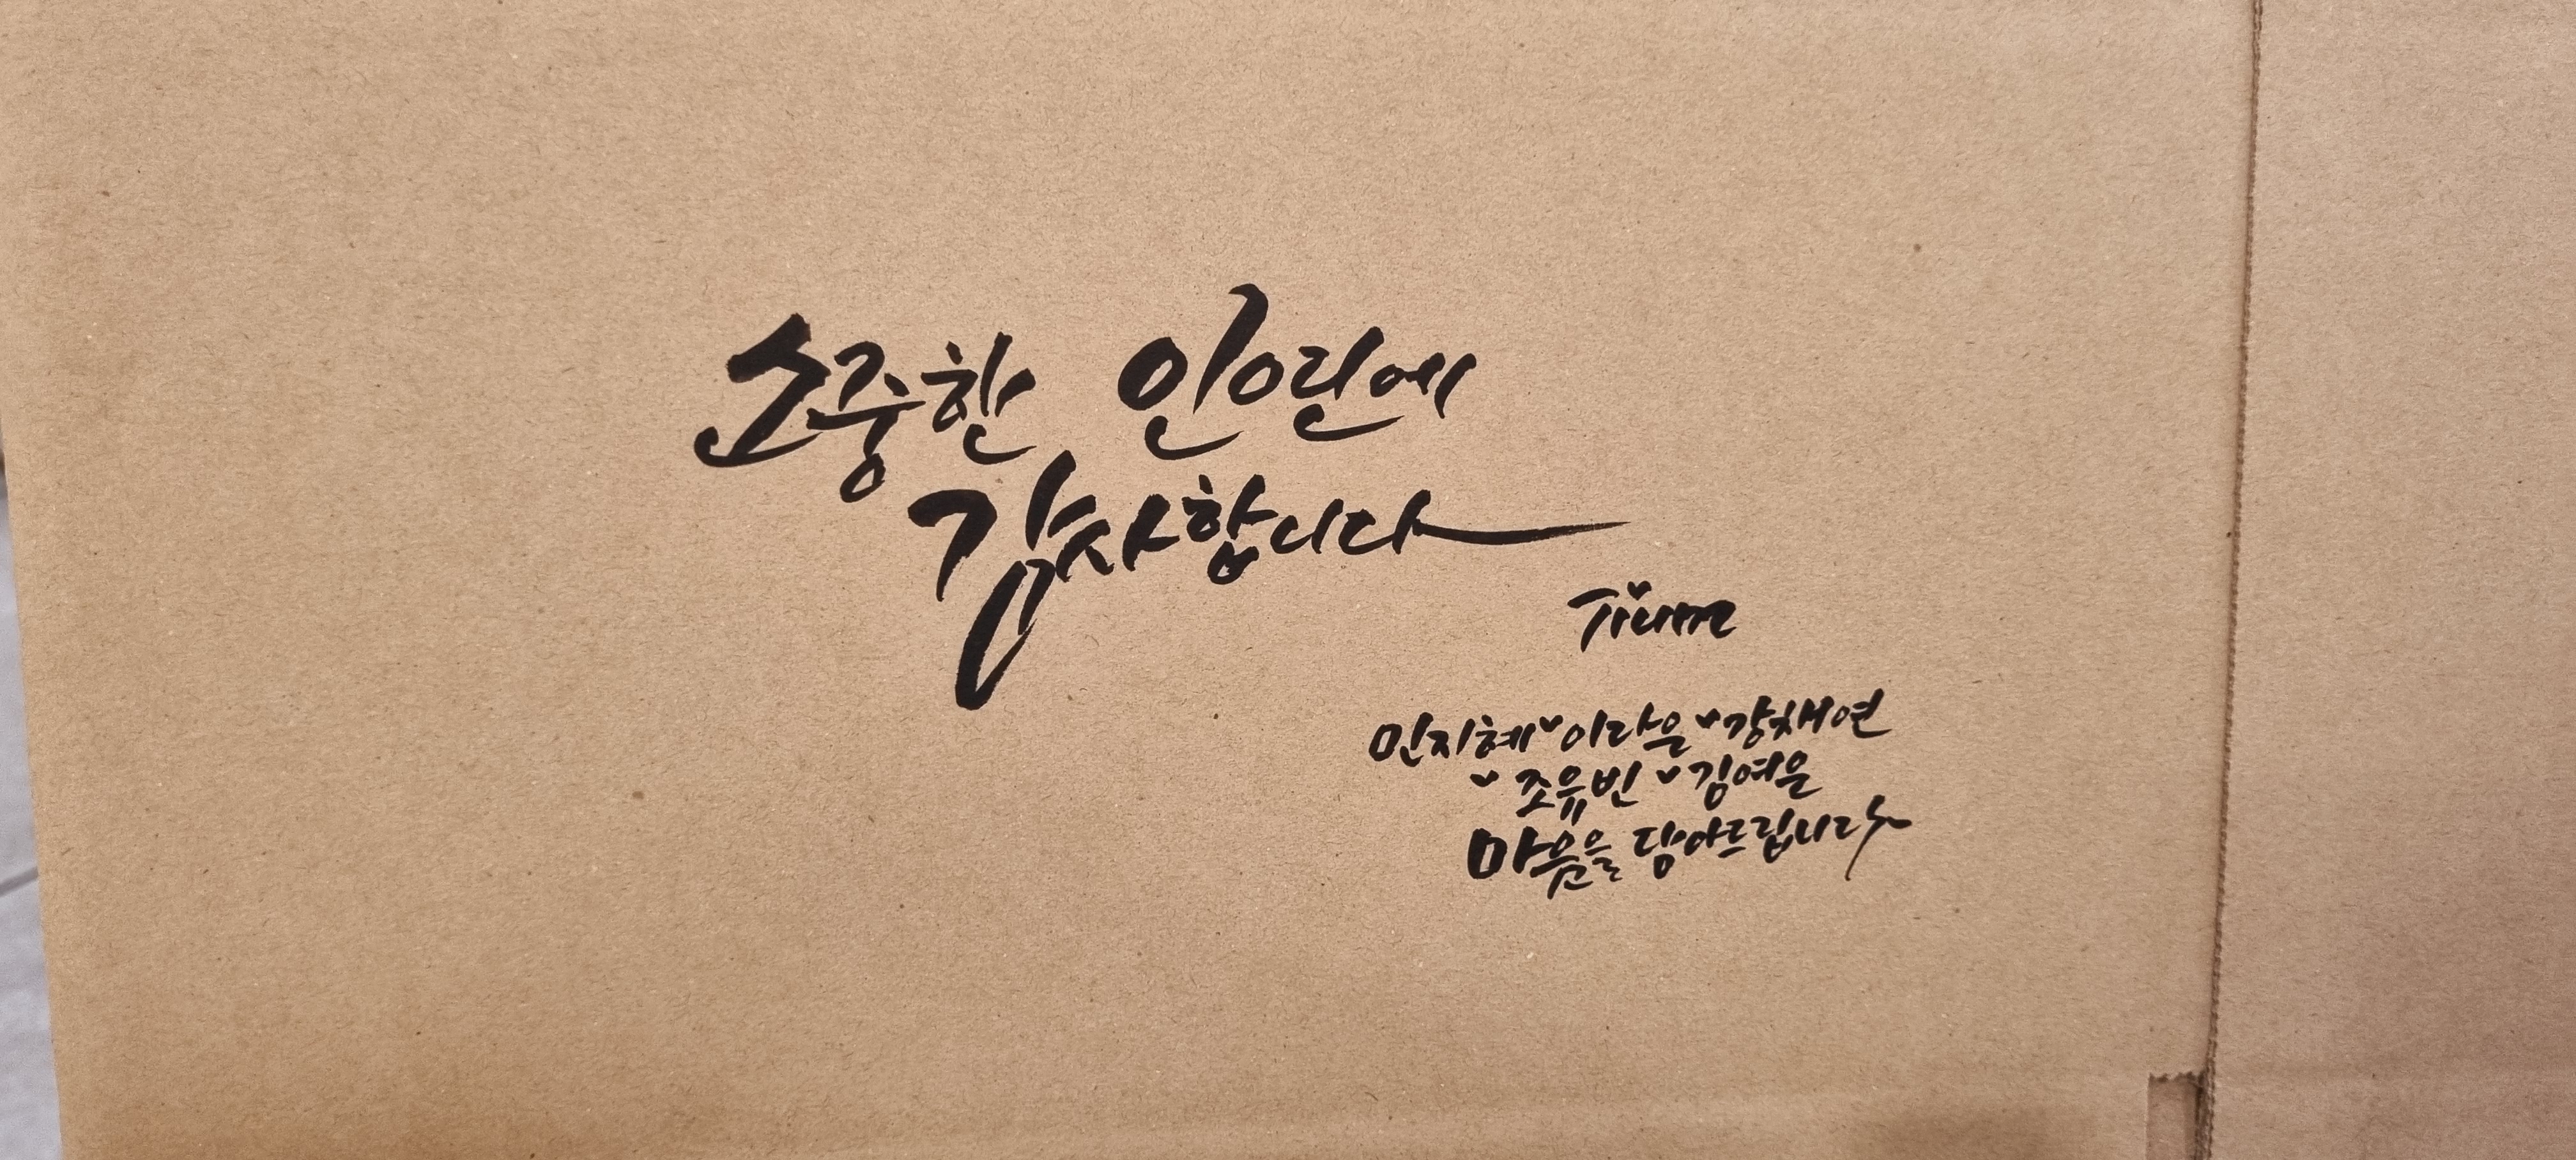 소중한 인연에
감사합니다
Tium
민지혜 이라윤 강채연
조유빈 김여운
마음을 담아드립니다